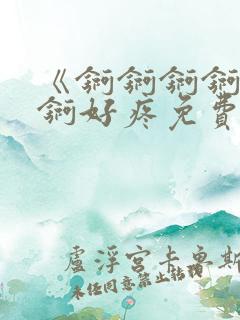 《锕锕锕锕
锕好疼免費
盧浮宮卡魯斯
未经同意禁止转载